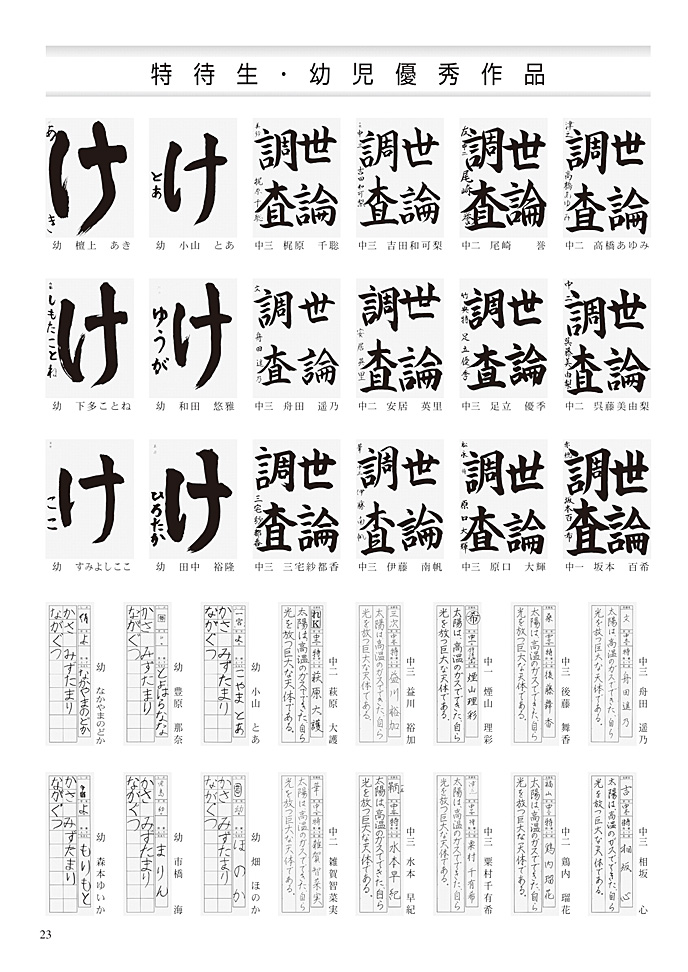 特待生・幼児優秀作品
世論調査
高橋あゆみ
中二 高橋あゆみ
世論調査
尾崎 誉
中二 尾崎 誉
世論調査
吉田和可梨
中三 吉田和可梨
世論調査
梶原千聡
中三 梶原 千聡
け
とあ
幼 小山 とあ
け
あき
幼 檀上 あき
世論調査
中二 呉藤美由梨
中二 呉藤美由梨
世論調査
足立優季
中三 足立 優季
世論調査
安居英里
中二 安居 英里
世論調査
舟田遥乃
中三 舟田 遥乃
け
ゆうが
幼 和田 悠雅
け
しもたことね
幼 下多ことね
世論調査
坂本百希
中一 坂本 百希
世論調査
原口大輝
中三 原口 大輝
世論調査
伊藤南帆
中三 伊藤 南帆
世論調査
三宅紗都香
中三 三宅紗都香
け
ひろたか
幼 田中 裕隆
け
ここ
幼 すみよしここ
中三 舟田 遥乃
文 中三 特 舟田遥乃
太陽は、高温のガスでできた、自ら
光を放つ巨大な天体である。
中三 後藤 舞香
後藤舞香
太陽は、高温のガスでできた、自ら
光を放つ巨大な天体である。
中一 煙山 理彩
煙山理彩
太陽は、高温のガスでできた、自ら
光を放つ巨大な天体である。
中三 益川 裕加
三次 中三 特 益川裕加
太陽は、高温のガスでできた、自ら
光を放つ巨大な天体である。
中二 萩原 大護
萩原大護
太陽は、高温のガスでできた、自ら
光を放つ巨大な天体である。
幼 小山 とあ
一宮 よ こやまとあ
かさ みずたまり
ながぐつ
幼 豊原 那奈
とよはらなな
かさ みずたまり
ながぐつ
幼 なかやまのどか
よ なかやまのどか
かさ みずたまり
ながぐつ
中三 相坂 心
吉 中三 特 相坂心
太陽は、高温のガスでできた、自ら
光を放つ巨大な天体である。
中二 鶏内 瑠花
福山 中二 特 鶏内瑠花
太陽は、高温のガスでできた、自ら
光を放つ巨大な天体である。
中三 栗村千有希
栗村千有希
太陽は、高温のガスでできた、自ら
光を放つ巨大な天体である。
中三 水本 早紀
水本早紀
太陽は、高温のガスでできた、自ら
光を放つ巨大な天体である。
中二 雑賀智菜実
雑賀智菜実
太陽は、高温のガスでできた、自ら
光を放つ巨大な天体である。
幼 畑 ほのか
園 幼 ほのか
かさ みずたまり
ながぐつ
幼 市橋 海
まりん
かさ みずたまり
ながぐつ
幼 森本ゆいか
よ もりもと
かさ みずたまり
ながぐつ
23